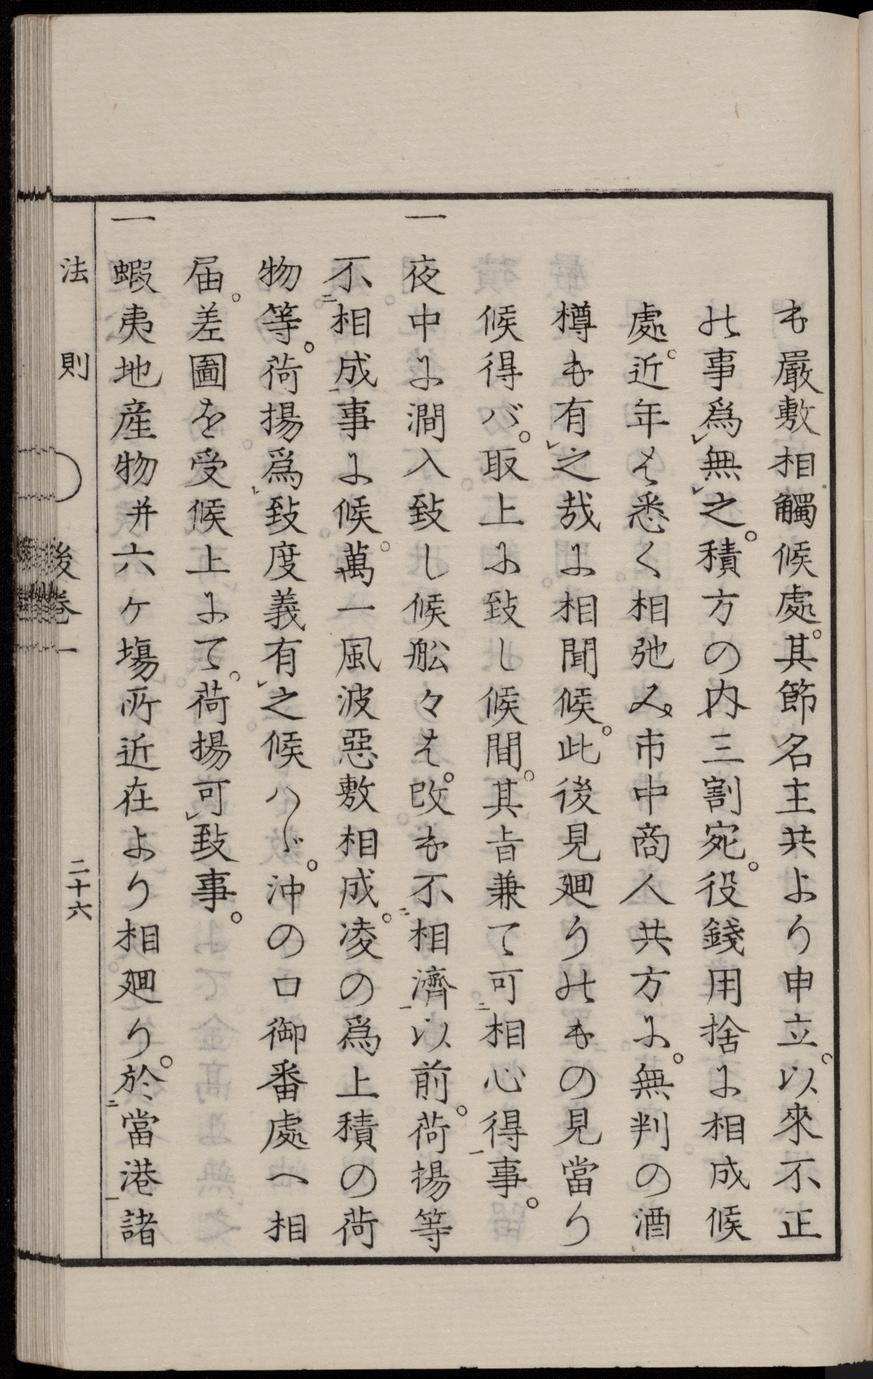 も嚴敷相觸候處。其節名主共より申立。以來不正
の事爲無之。積方の内三割宛。役錢用捨に相成候
處。近年は悉く相弛み。市中商人共方に。無判の酒
樽も有之哉に相聞候。此後見廻りのもの見當り
候得バ。取上に致し候間。其旨兼て可相心得事。
一 夜中に澗入致し候舩々は。改も不相濟以前。荷揚等
不相成事に候。萬一風波惡敷相成。凌の爲上積の荷
物等。荷揚爲致度義有之候ハヾ。沖の口御番處へ相
届。差圖を受候上にて。荷揚可致事。
一 蝦夷地産物并六ケ塲所近在より相廻り。於當港諸
法則 後巻一 二十六